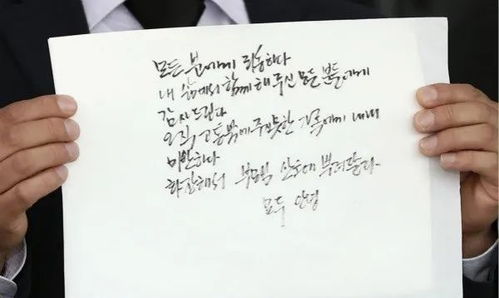 모든 분에게 죄송하다
내 삶에서 함께해 주신 모든 분들에게
감사드린다
오직 고통밖에 주지 못한 가족에게 내내
미안하다
화장해서 부모님 산소에 뿌려달라
모두 안녕